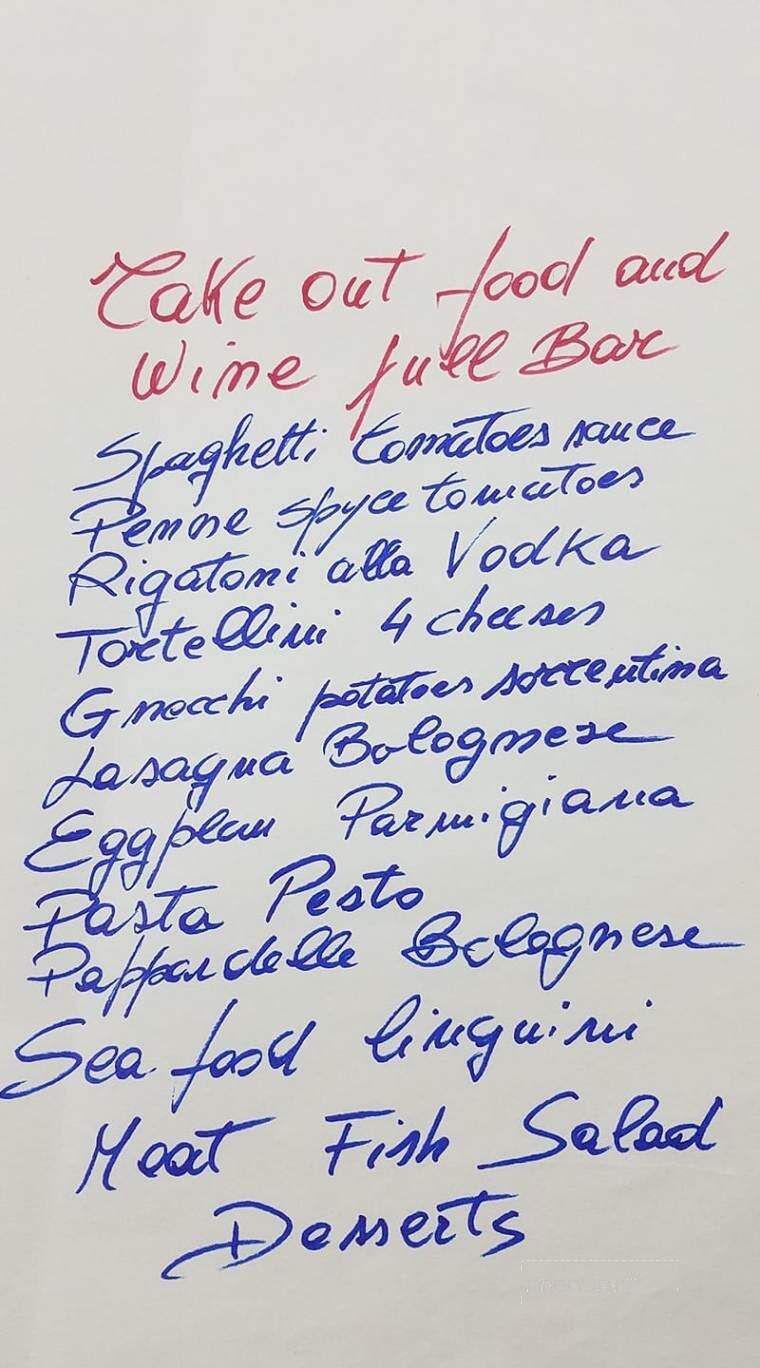 Take out food and
Wine full Bar
Spaghetti tomatoes sauce
Penne spyce tomatoes
Rigatoni alla Vodka
Tortellini 4 cheeses
Gnocchi potatoes sorrentina
Lasagna Bolognese
Eggplan Parmigiana
Pasta Pesto
Pappardelle Bolognese
Sea food linguini
Meat Fish Salad
Desserts